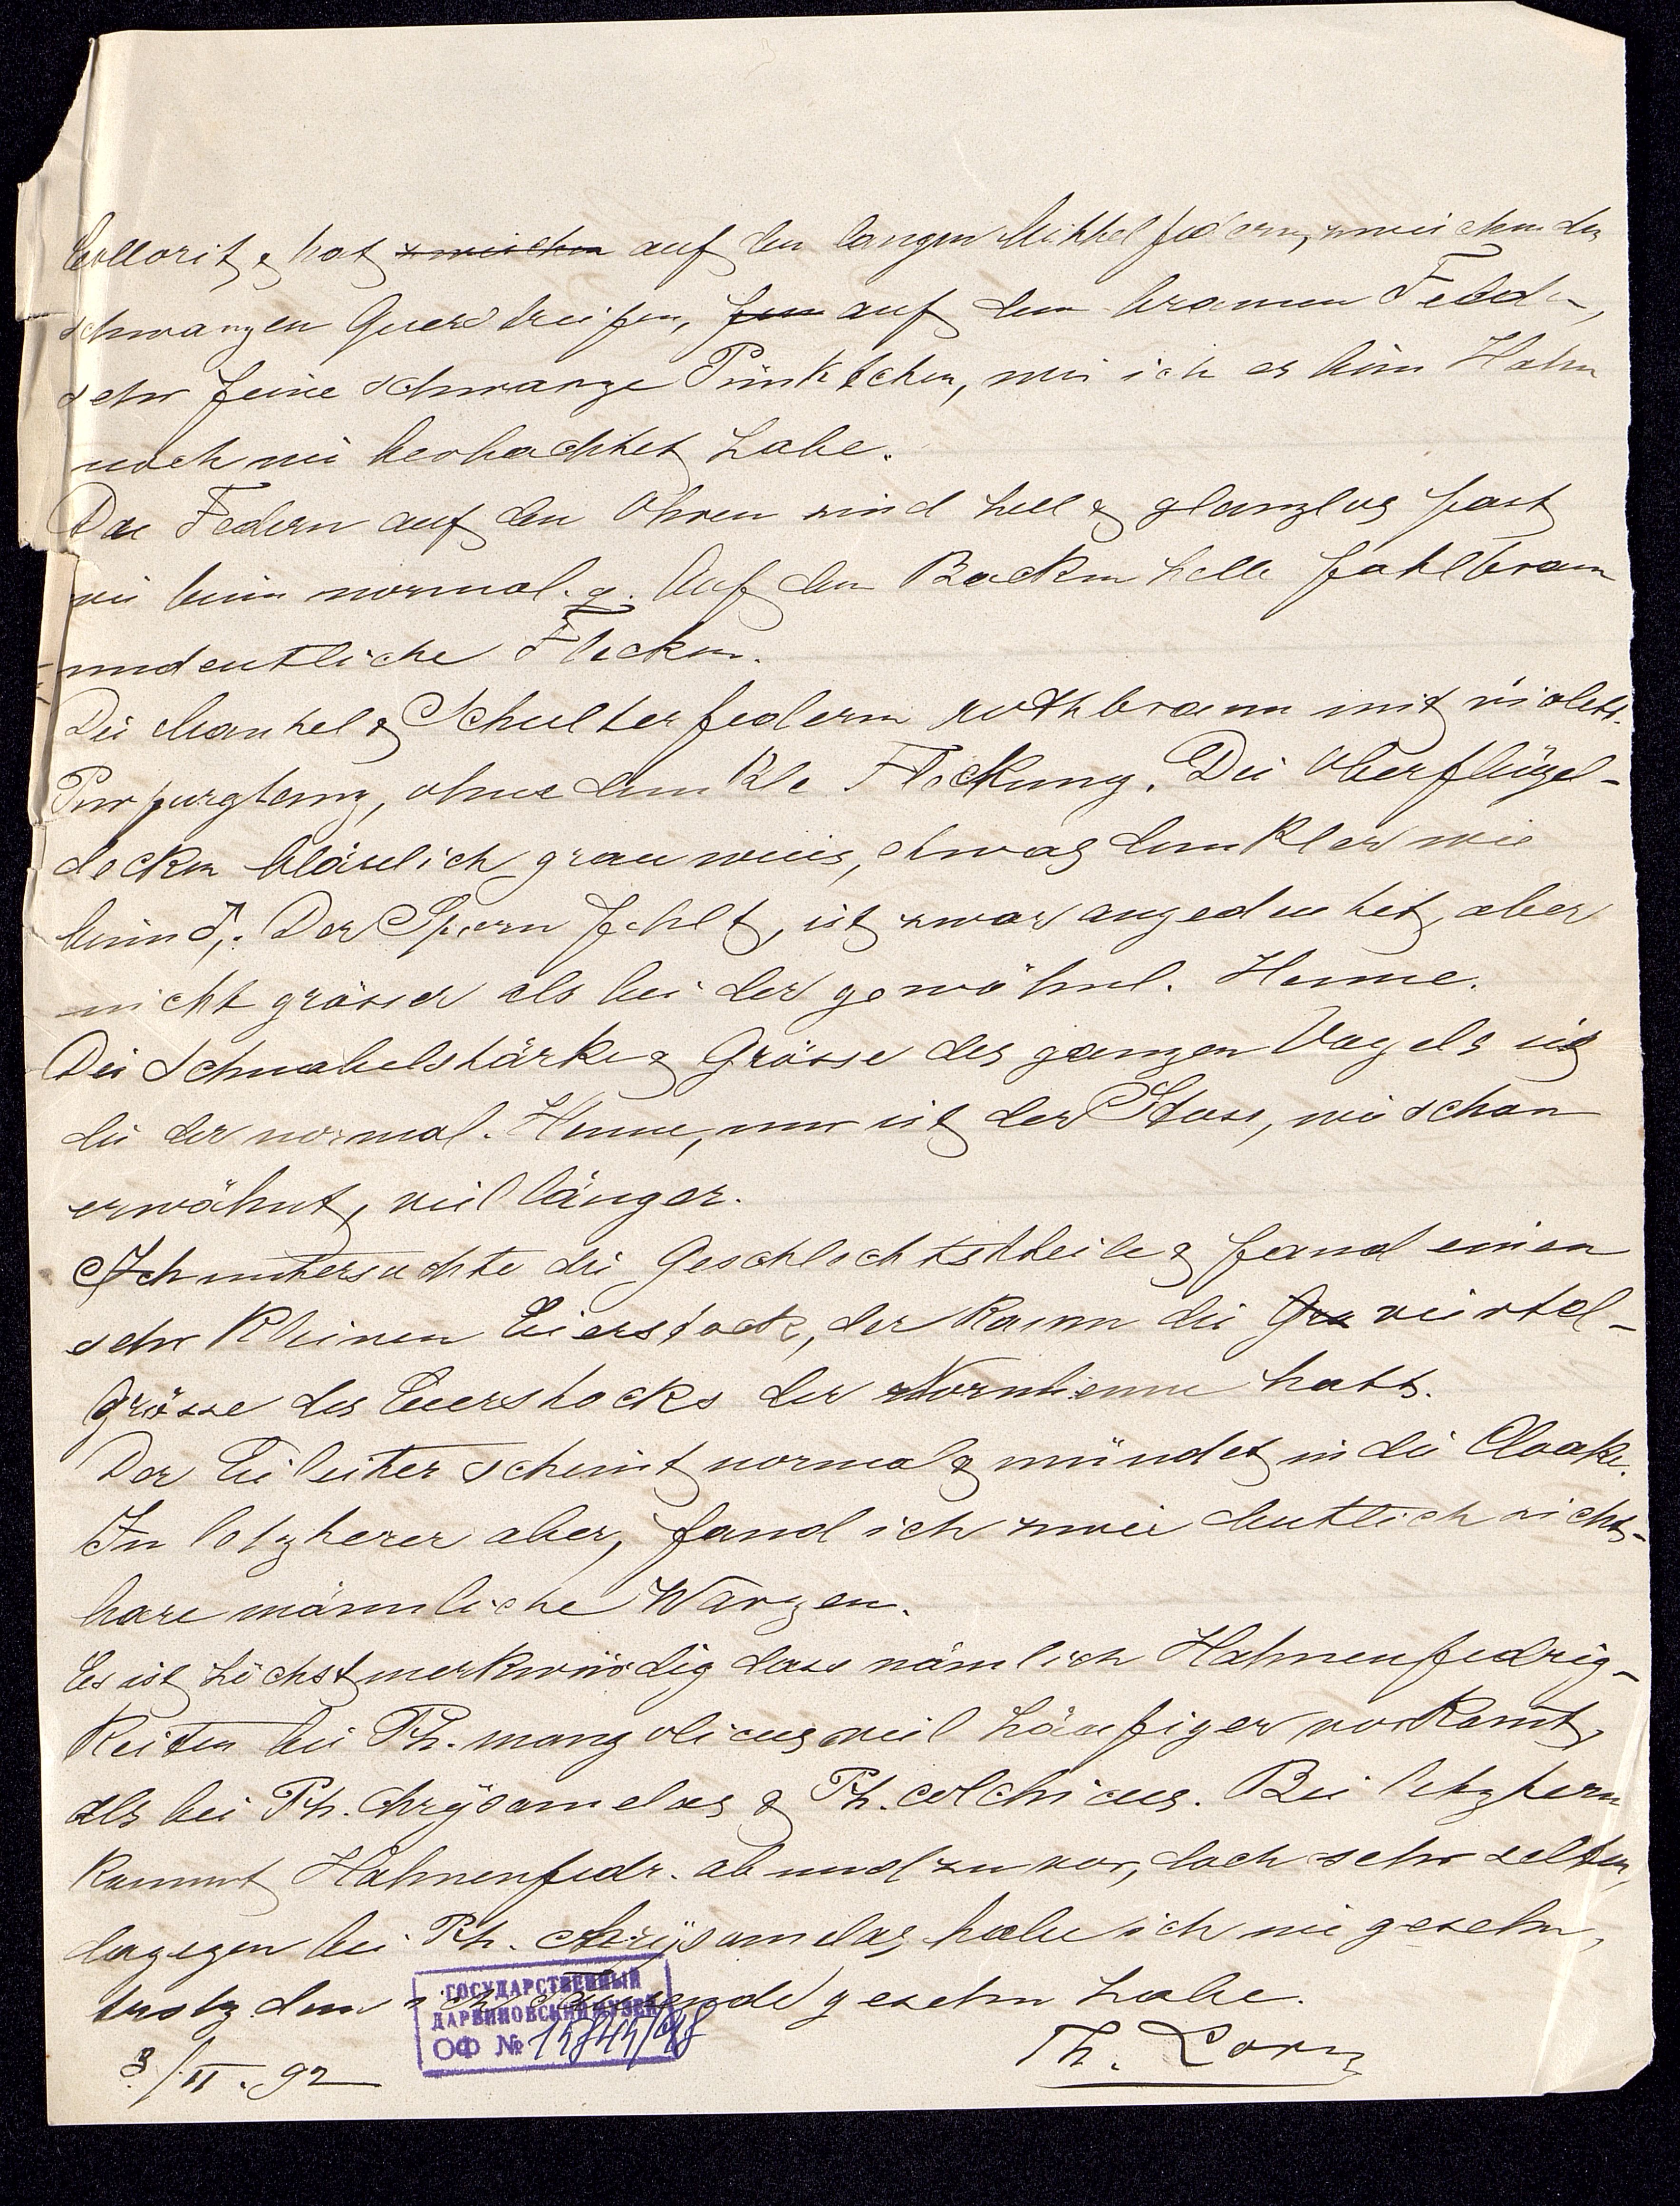 Collorit & hat zwischen auf den langen Mittelfedern, zwischen den
schwarzen Querstreifen, fein auf dem braunen Felde,
sehr feine schwarze Pünktchen, wie ich es beim Hahn
noch nie beobachtet habe.
Die Federn auf den Ohren sind hell & glanzlos fast
wie beim normal. ♀. Auf den Backen helle fahlbraun
undeutliche Flecken.
Die Mantel & Schulterfedern rothbraun mit violett.
Purpurglanz, ohne dunkle Fleckung. Die Oberflügel-
decken bläulich grauweis, etwas dunkler wie
beim ♂. Der Sporn fehlt, ist zwar angedeutet, aber
nicht grösser als bei der gewöhnl. Henne.
Die Schnabelstärke & Grösse des ganzen Vogels ist
die der normal. Henne, nur ist der Stoss, wie schon
erwähnt, viel länger.
Ich untersuchte die Geschlechtstheile & fand einen
sehr kleinen Eierstock, der kaum die Grö viertel-
grösse des Eierstocks der Normhenne hatt.
Der Eileiter scheint normal & mündet in die Cloake.
In letzterer aber, fand ich zwei deutlich sicht-
bare männliche Warzen.
Es ist höchst merkwürdig dass nämlich Hahnenfedrig-
keiten bei Ph. mongolicus viel häufiger vorkomt,
als bei Ph. chrÿsomelas & Ph. colchicus. Bei letztern
kommt Hahnenfedr. ab und zu vor, doch sehr selten,
dagegen bei Ph. chrÿsomelas habe ich nie gesehn,
trotzdem ich Tausende gesehn habe.
3/II. 92
Th. Lorenz
ГОСУДАРСТВЕННЫЙ
ДАРВИНОВСКИЙ МУЗЕЙ
ОФ № 15845/98